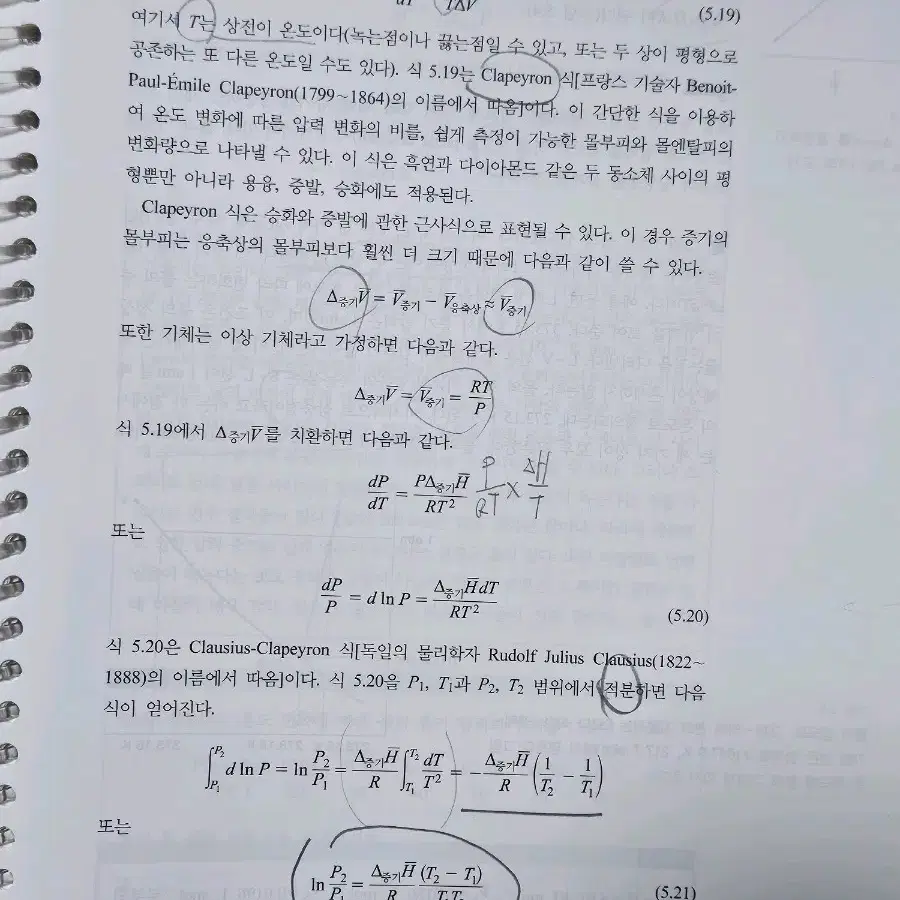 dT TΔV (5.19)
여기서 T는 상전이 온도이다(녹는점이나 끓는점일 수 있고, 또는 두 상이 평형으로
공존하는 또 다른 온도일 수도 있다). 식 5.19는 Clapeyron 식[프랑스 기술자 Benoit-
Paul-Émile Clapeyron(1799~1864)의 이름에서 따옴]이다. 이 간단한 식을 이용하
여 온도 변화에 따른 압력 변화의 비를, 쉽게 측정이 가능한 몰부피와 몰엔탈피의
변화량으로 나타낼 수 있다. 이 식은 흑연과 다이아몬드 같은 두 동소체 사이의 평
형뿐만 아니라 용융, 증발, 승화에도 적용된다.
Clapeyron 식은 승화와 증발에 관한 근사식으로 표현될 수 있다. 이 경우 증기의
몰부피는 응축상의 몰부피보다 훨씬 더 크기 때문에 다음과 같이 쓸 수 있다.
Δ증기V̅ = V̅증기 − V̅응축상 ≈ V̅증기
또한 기체는 이상 기체라고 가정하면 다음과 같다.
Δ증기V̅ = V̅증기 = RT/P
식 5.19에서 Δ증기V̅를 치환하면 다음과 같다.
dP/dT = PΔ증기H̅/RT² P/RT × ΔH/T
또는
dP/P = d ln P = Δ증기H̅dT/RT² (5.20)
식 5.20은 Clausius-Clapeyron 식[독일의 물리학자 Rudolf Julius Clausius(1822~
1888)의 이름에서 따옴]이다. 식 5.20을 P₁, T₁과 P₂, T₂ 범위에서 적분하면 다음
식이 얻어진다.
∫P₁P₂ d ln P = ln P₂/P₁ = Δ증기H̅/R ∫T₁T₂ dT/T² = −Δ증기H̅/R (1/T₂ − 1/T₁)
또는
ln P₂/P₁ = Δ증기H̅ (T₂ − T₁)/R T₁T₂ (5.21)